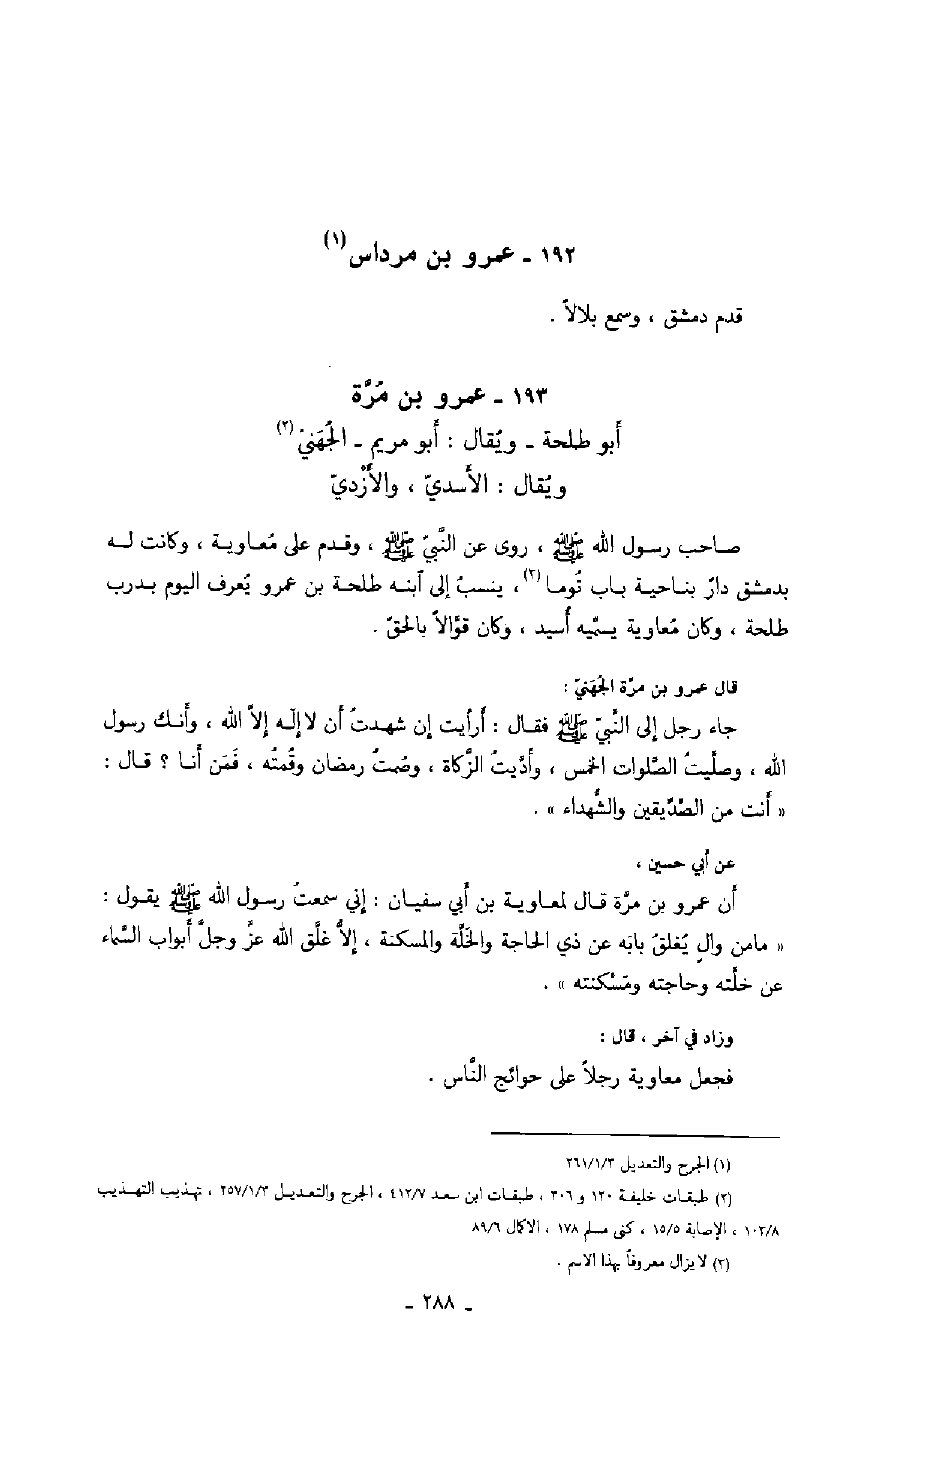 ١٩٢ ـ عمرو بن مرداس(١)
قدم دمشق ، وسمع بلالاً .
١٩٣ ـ عمرو بن مُرَّة
أبو طلحة ـ ويُقال : أبو مريم ـ الجُهَنيّ(٢)
ويُقال : الأَسديّ ، والأَزْديّ
صاحب رسول الله ﷺ ، روى عن النَّبيّ ﷺ ، وقدم على مُعاوية ، وكانت له
بدمشق دارٌ بناحية باب تُوما(٣)، ينسبُ إلى آبنه طلحة بن عمرو يُعرف اليوم بدرب
طلحة ، وكان مُعاوية يسمِّيه أُسيد ، وكان قوَّالاً بالحقّ .
قال عمرو بن مرَّة الجُهَنيّ :
جاء رجل إلى النَّبيّ ﷺ فقال : أرأيت إن شهدتُ أن لا إله إلاَّ الله ، وأنك رسول
الله ، وصلَّيتُ الصَّلوات الخمس ، وأدَّيتُ الزَّكاة ، وصُمتُ رمضان وقُمتُه ، فَمَن أنا ؟ قال :
« أنت من الصِّدِّيقين والشُّهداء » .
عن أبي حسين ،
أن عمرو بن مرَّة قال لمعاوية بن أبي سفيان : إني سمعتُ رسول الله ﷺ يقول :
« مامن والٍ يُغلقُ بابَه عن ذي الحاجة والخَلَّة والمسكنة ، إلاَّ غلَّق الله عزَّ وجلَّ أبواب السَّماء
عن خلَّته وحاجته ومَسْكنته » .
وزاد في آخر ، قال :
فجعل معاوية رجلاً على حوائج النَّاس .
(١) الجرح والتعديل ٢٦١/١/٣
(٢) طبقات خليفة ١٢٠ و ٣٠٦ ، طبقات ابن سعد ٤١٢/٧ ، الجرح والتعديل ٢٥٧/١/٣ ، تهذيب التهذيب
١٠٣/٨ ، الإصابة ١٥/٥ ، كنى مسلم ١٧٨ ، الاكمال ٨٩/٦
(٣) لا يزال معروفاً بهذا الاسم .
ـ ٢٨٨ ـ